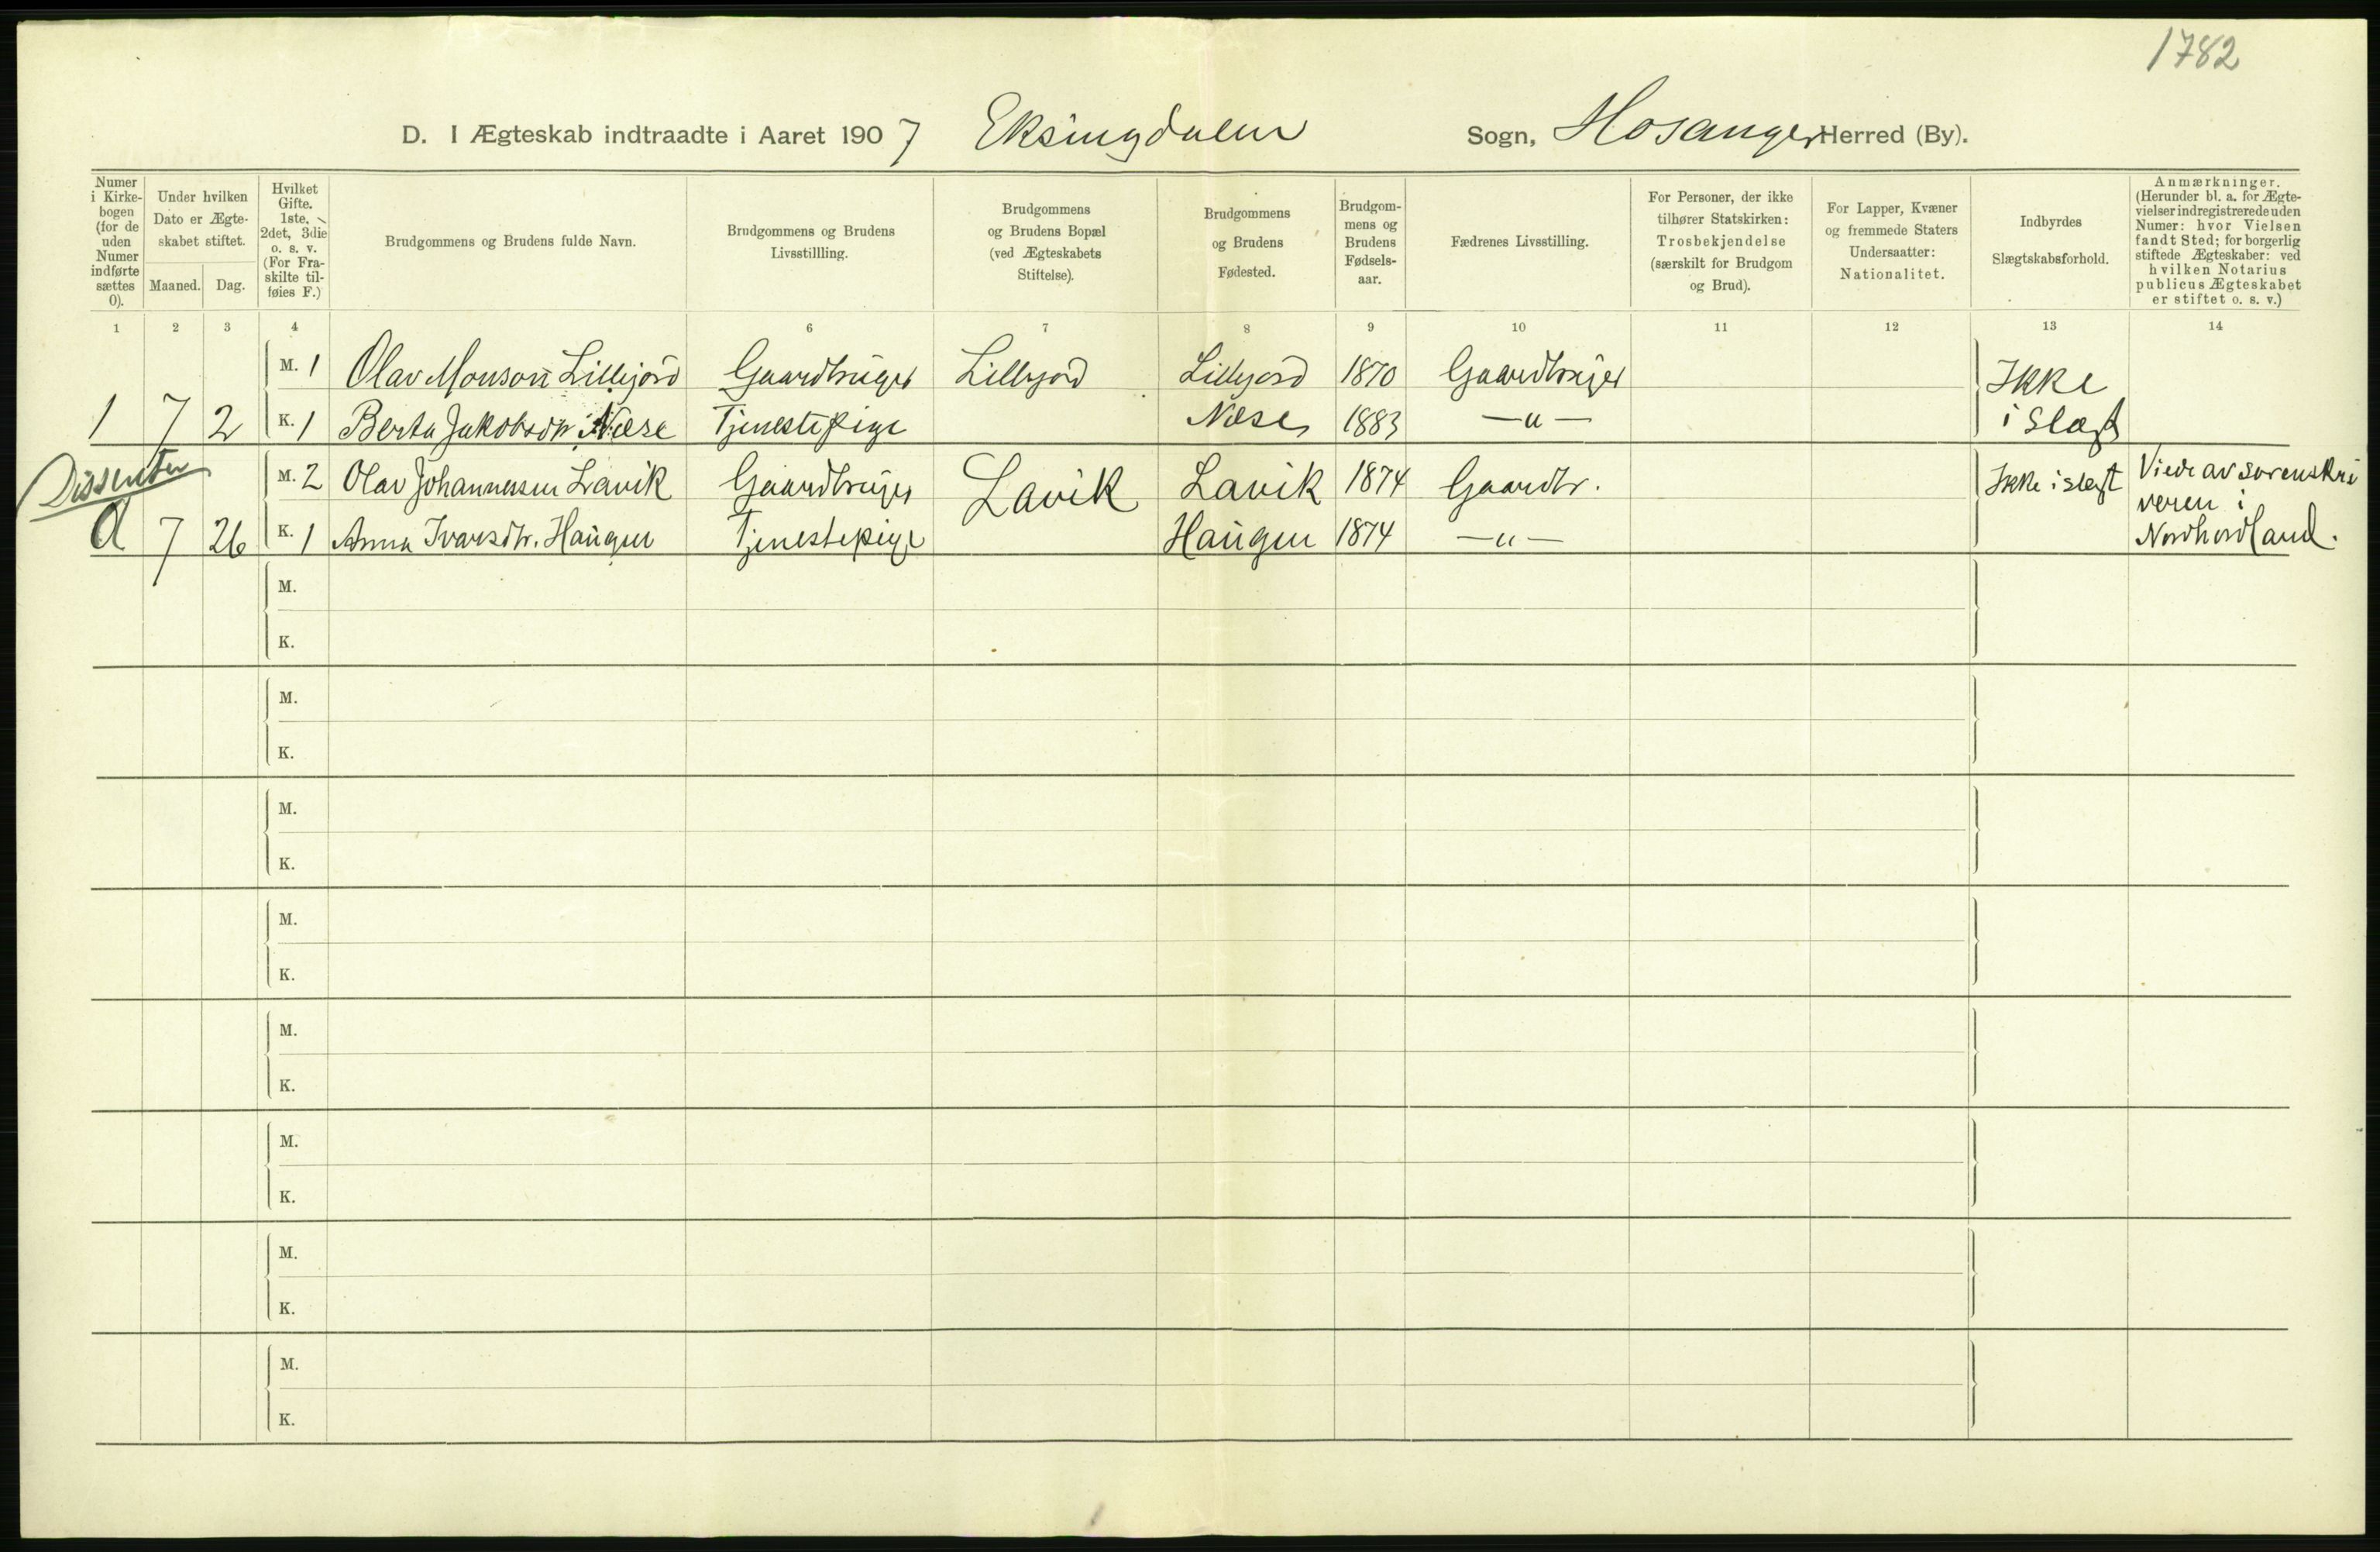 1782
D. I Ægteskab indtraadte i Aaret 1907 Eksingdalen Sogn, Hosanger Herred (By).
Numer i Kirke- bogen (for de uden Numer indførte sættes 0).
Under hvilken Dato er Ægte- skabet stiftet.
Maaned. Dag.
Hvilket Gifte. 1ste, 2det, 3die o. s. v. (For Fra- skilte til- føies F.)
Brudgommens og Brudens fulde Navn.
Brudgommens og Brudens Livsstillling.
Brudgommens og Brudens Bopæl (ved Ægteskabets Stiftelse).
Brudgommens og Brudens Fødested.
Brudgom- mens og Brudens Fødsels- aar.
Fædrenes Livsstilling.
For Personer, der ikke tilhører Statskirken: Trosbekjendelse (særskilt for Brudgom og Brud).
For Lapper, Kvæner og fremmede Staters Undersaatter: Nationalitet.
Indbyrdes Slægtskabsforhold.
Anmærkninger. (Herunder bl. a. for Ægte- vielser indregistrerede uden Numer: hvor Vielsen fandt Sted; for borgerlig stiftede Ægteskaber: ved hvilken Notarius publicus Ægteskabet er stiftet o. s. v.)
1 2 3 4 6 7 8 9 10 11 12 13 14
M. 1 Olav Monson Lillejord Gaardbruger Lillejord Lillejord 1870 Gaardbruger Ikke
1 7 2 K. 1 Berta Jakobsdtr. Næse Tjenestepige Næse 1883 —"— i Slægt
Dissenter M. 2 Olav Johannessen Lavik Gaardbruger Lavik Lavik 1874 Gaardbr. Ikke i slægt Viede av sorenskri
veren i
a 7 26 K. 1 Anna Ivarsdtr. Haugen Tjenestepige Haugen 1874 —"— Nordhordland.
M.
K.
M.
K.
M.
K.
M.
K.
M.
K.
M.
K.
M.
K.
M.
K.